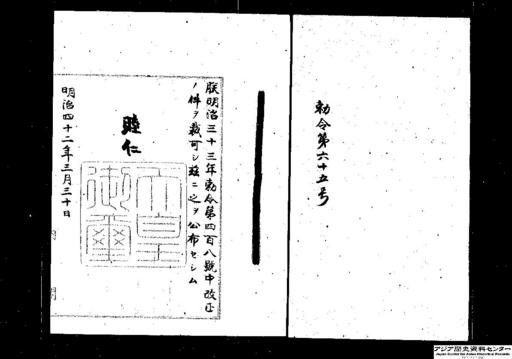 勅令第六十五号
朕明治三十三年勅令第四百八號中改正
ノ件ヲ裁可シ茲ニ之ヲ公布セシム
睦仁
天皇
御璽
明治四十二年三月三十日
アジア歴史資料センター
Japan Center for Asian Historical Records